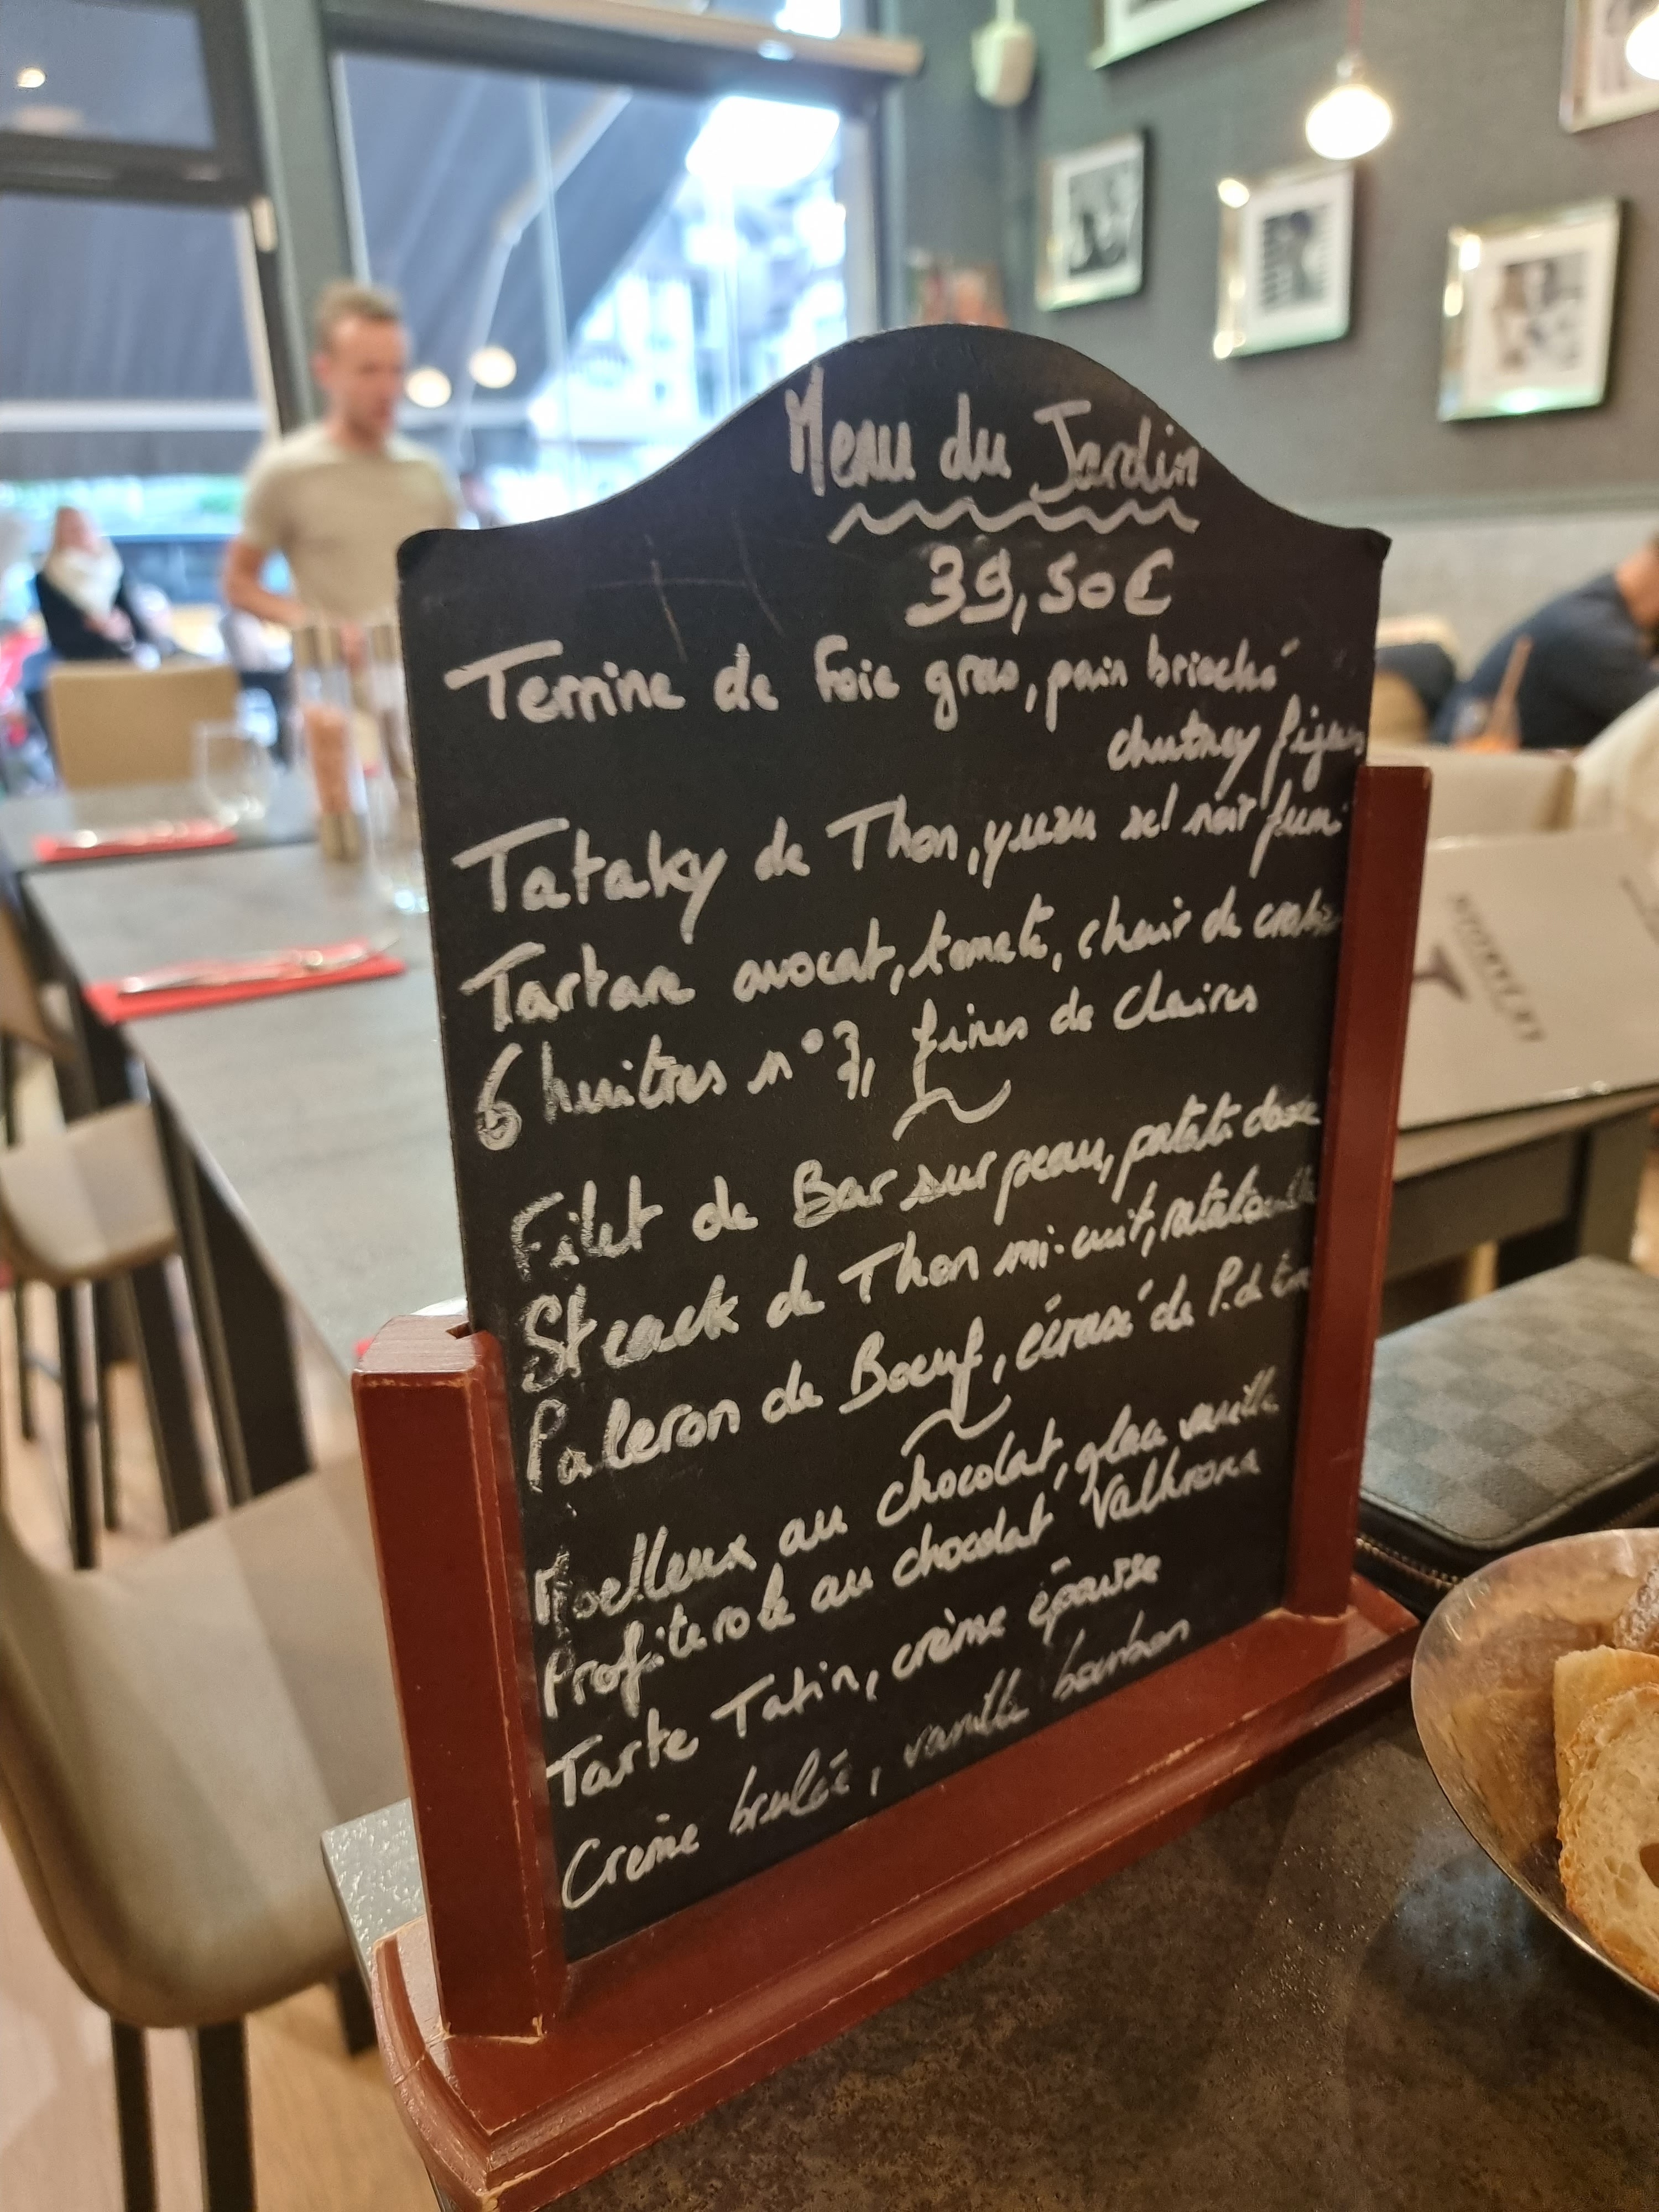 Menu du Jardin
39,50€
Terrine de Foie gras, pain brioché
chutney figues
Tataky de Thon, yuzu sel noir fumé
Tartare avocat, tomate, chair de crabe
6 huitres n°3, fines de claires
Filet de Bar sur peau, patate douce
Steack de Thon mi-cuit, ratatouille
Paleron de Boeuf, écrasé de P. de terre
Moelleux au chocolat, glace vanille
Profiterole au chocolat Valhrona
Tarte Tatin, crème épaisse
Crème brulée, vanille bourbon